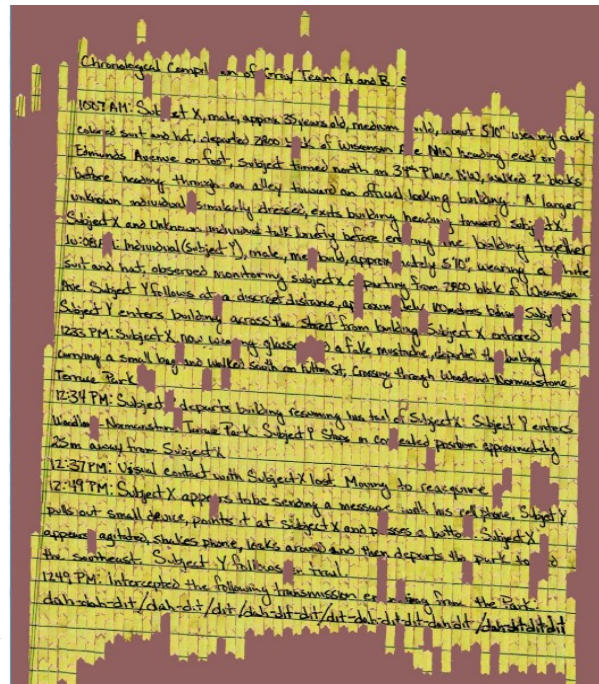 Chronological Compil on of Gray Team A and B s
1007 AM: Sub ect X, male, approx 35 years old, medium uild, about 5'10" wearing dark
colored suit and hat, departed 2800 b k of Wisconsin A e NW heading east on
Edmunds Avenue on foot, subject turned north on 34th Place NW, walked 2 blocks
before heading through an alley toward an official looking building. A larger
unknown individual similarly dressed, exits building heading toward subject X.
Subject X and Unknown individual talk briefly before en ing the building together
10:08 A : Individual (subject Y), male, me build, approx ately 5'10", wearing a white
suit and hat, observed monitoring subject X parting from 2800 block of Wisconsin
Ave. Subject Y follows at a discreet distance, ap roxim tely 100 meters behind Subject
Subject Y enters building across the street from building Subject X entered
1233 PM: Subject X now wea ng glasse a fake mustache, departed the building
carrying a small bag and walked south on Fulton St, Crossing through Woodland-Normanstone
Terrace Park
12:34 PM: Subject departs building resuming his tail of Subject X. Subject Y enters
Woodlan - Normanstone Terrace Park. Subject Y Stops in con ealed position approximately
25m away from Subject X
12:37 PM: Visual contact with Subject X lost. Moving to reacquire
12:49 PM: Subject X appears to be sending a message with his cell phone. Subject Y
pulls out small device, points it at subject X and p esses a butto . Subject X
appears agitated, shakes phone, looks around and then departs the park to d
the southeast. Subject Y follows in trail.
1249 PM: Intercepted the following transmission em ing from the Park:
dah-dah-dit/dah-dit/dit/dah-dit-dit/dit-dah-dit-dit-dah-dit/dah-dit-dit-dit